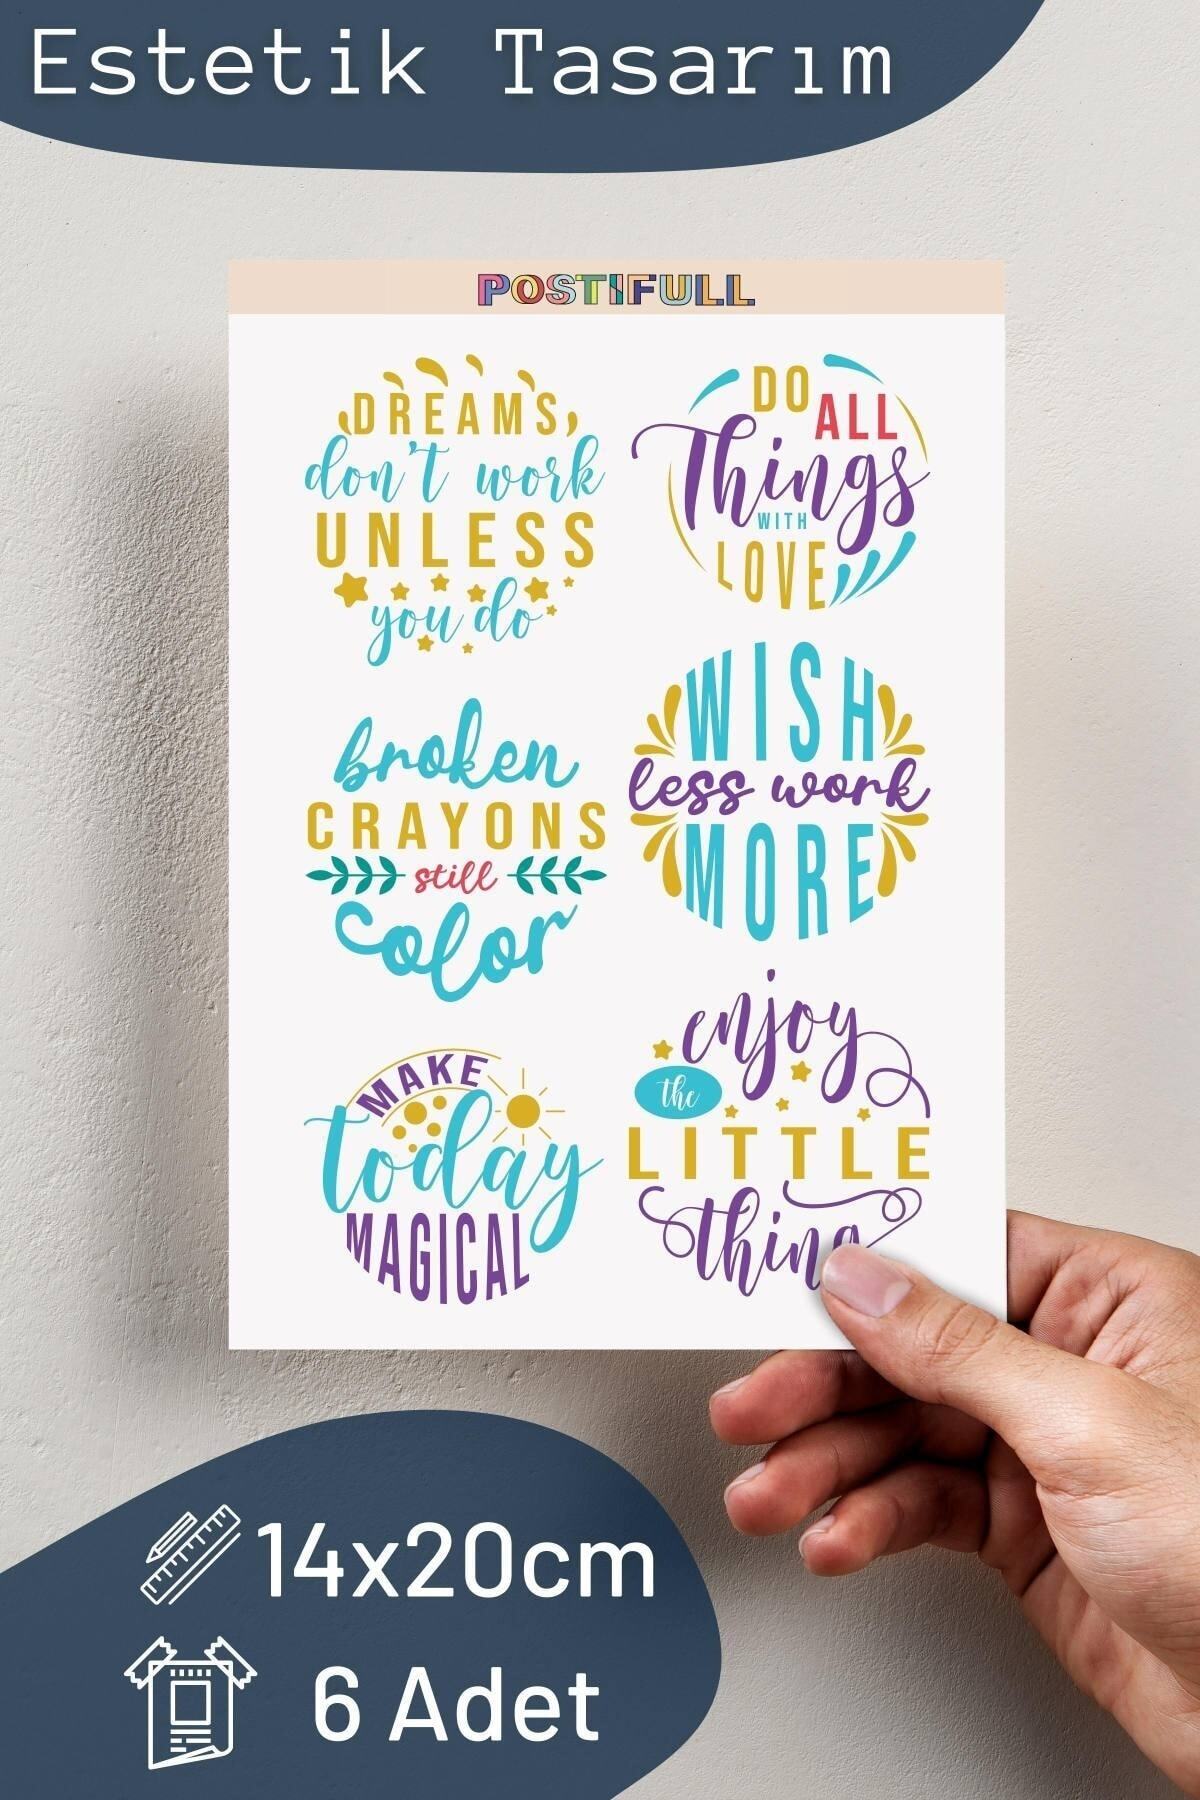 Estetik Tasarım
POSTIFULL
DREAMS
don't work
UNLESS
you do
DO
ALL
Things
WITH
LOVE
broken
CRAYONS
still
color
WISH
less work
MORE
MAKE
today
MAGICAL
enjoy
the
LITTLE
thing
14x20cm
6 Adet